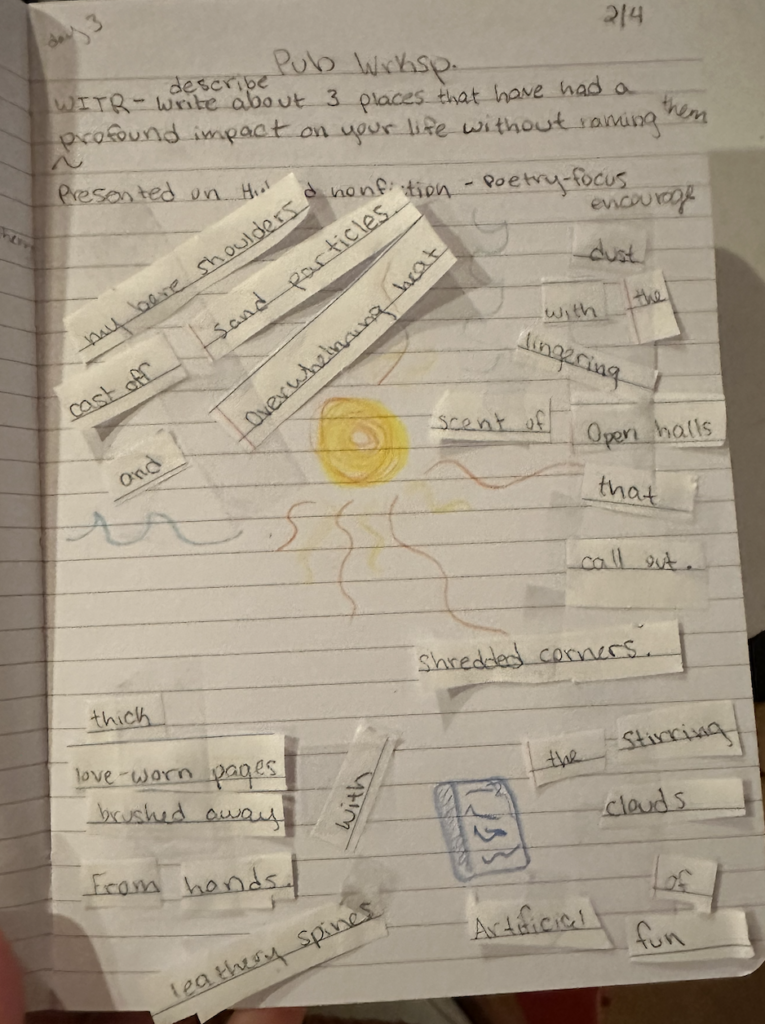 day 3
2/4
Pub Wrksp.
describe
WITR - Write about 3 places that have had a
profound impact on your life without naming them
Presented on nonfiction - Poetry-focus
encourage
my bare shoulders
sand particles
overwhelming heat
cast off
and
dust
with the
lingering
scent of
Open halls
that
call out.
shredded corners.
thick
love-worn pages
brushed away
From hands.
with
leathery spines
the stirring
clouds
of
Artificial
fun